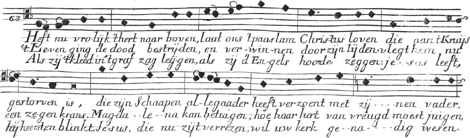 63
Heft nu vrolijk 't hert naar boven, laat ons 't paaslam Christus loven die aan 't Kruis
't Leven ging de dood bestrijden, en verwinnen door zijn lijden, vlegt hem nu
Als zij 't kleed in 't graf zag leggen, als zij d'Engels hoorde zeggen: Jesus leeft,
gestorven is, die zijn Schaapen allegaader heeft verzoent met zijnen vader,
een zegen krans. Magdalena kan betuigen, hoe haar hert van vreugd moest juigen,
hij heesten blinkt. Jesus, die nu zijt verrezen, wil uw kerk genadig wesen